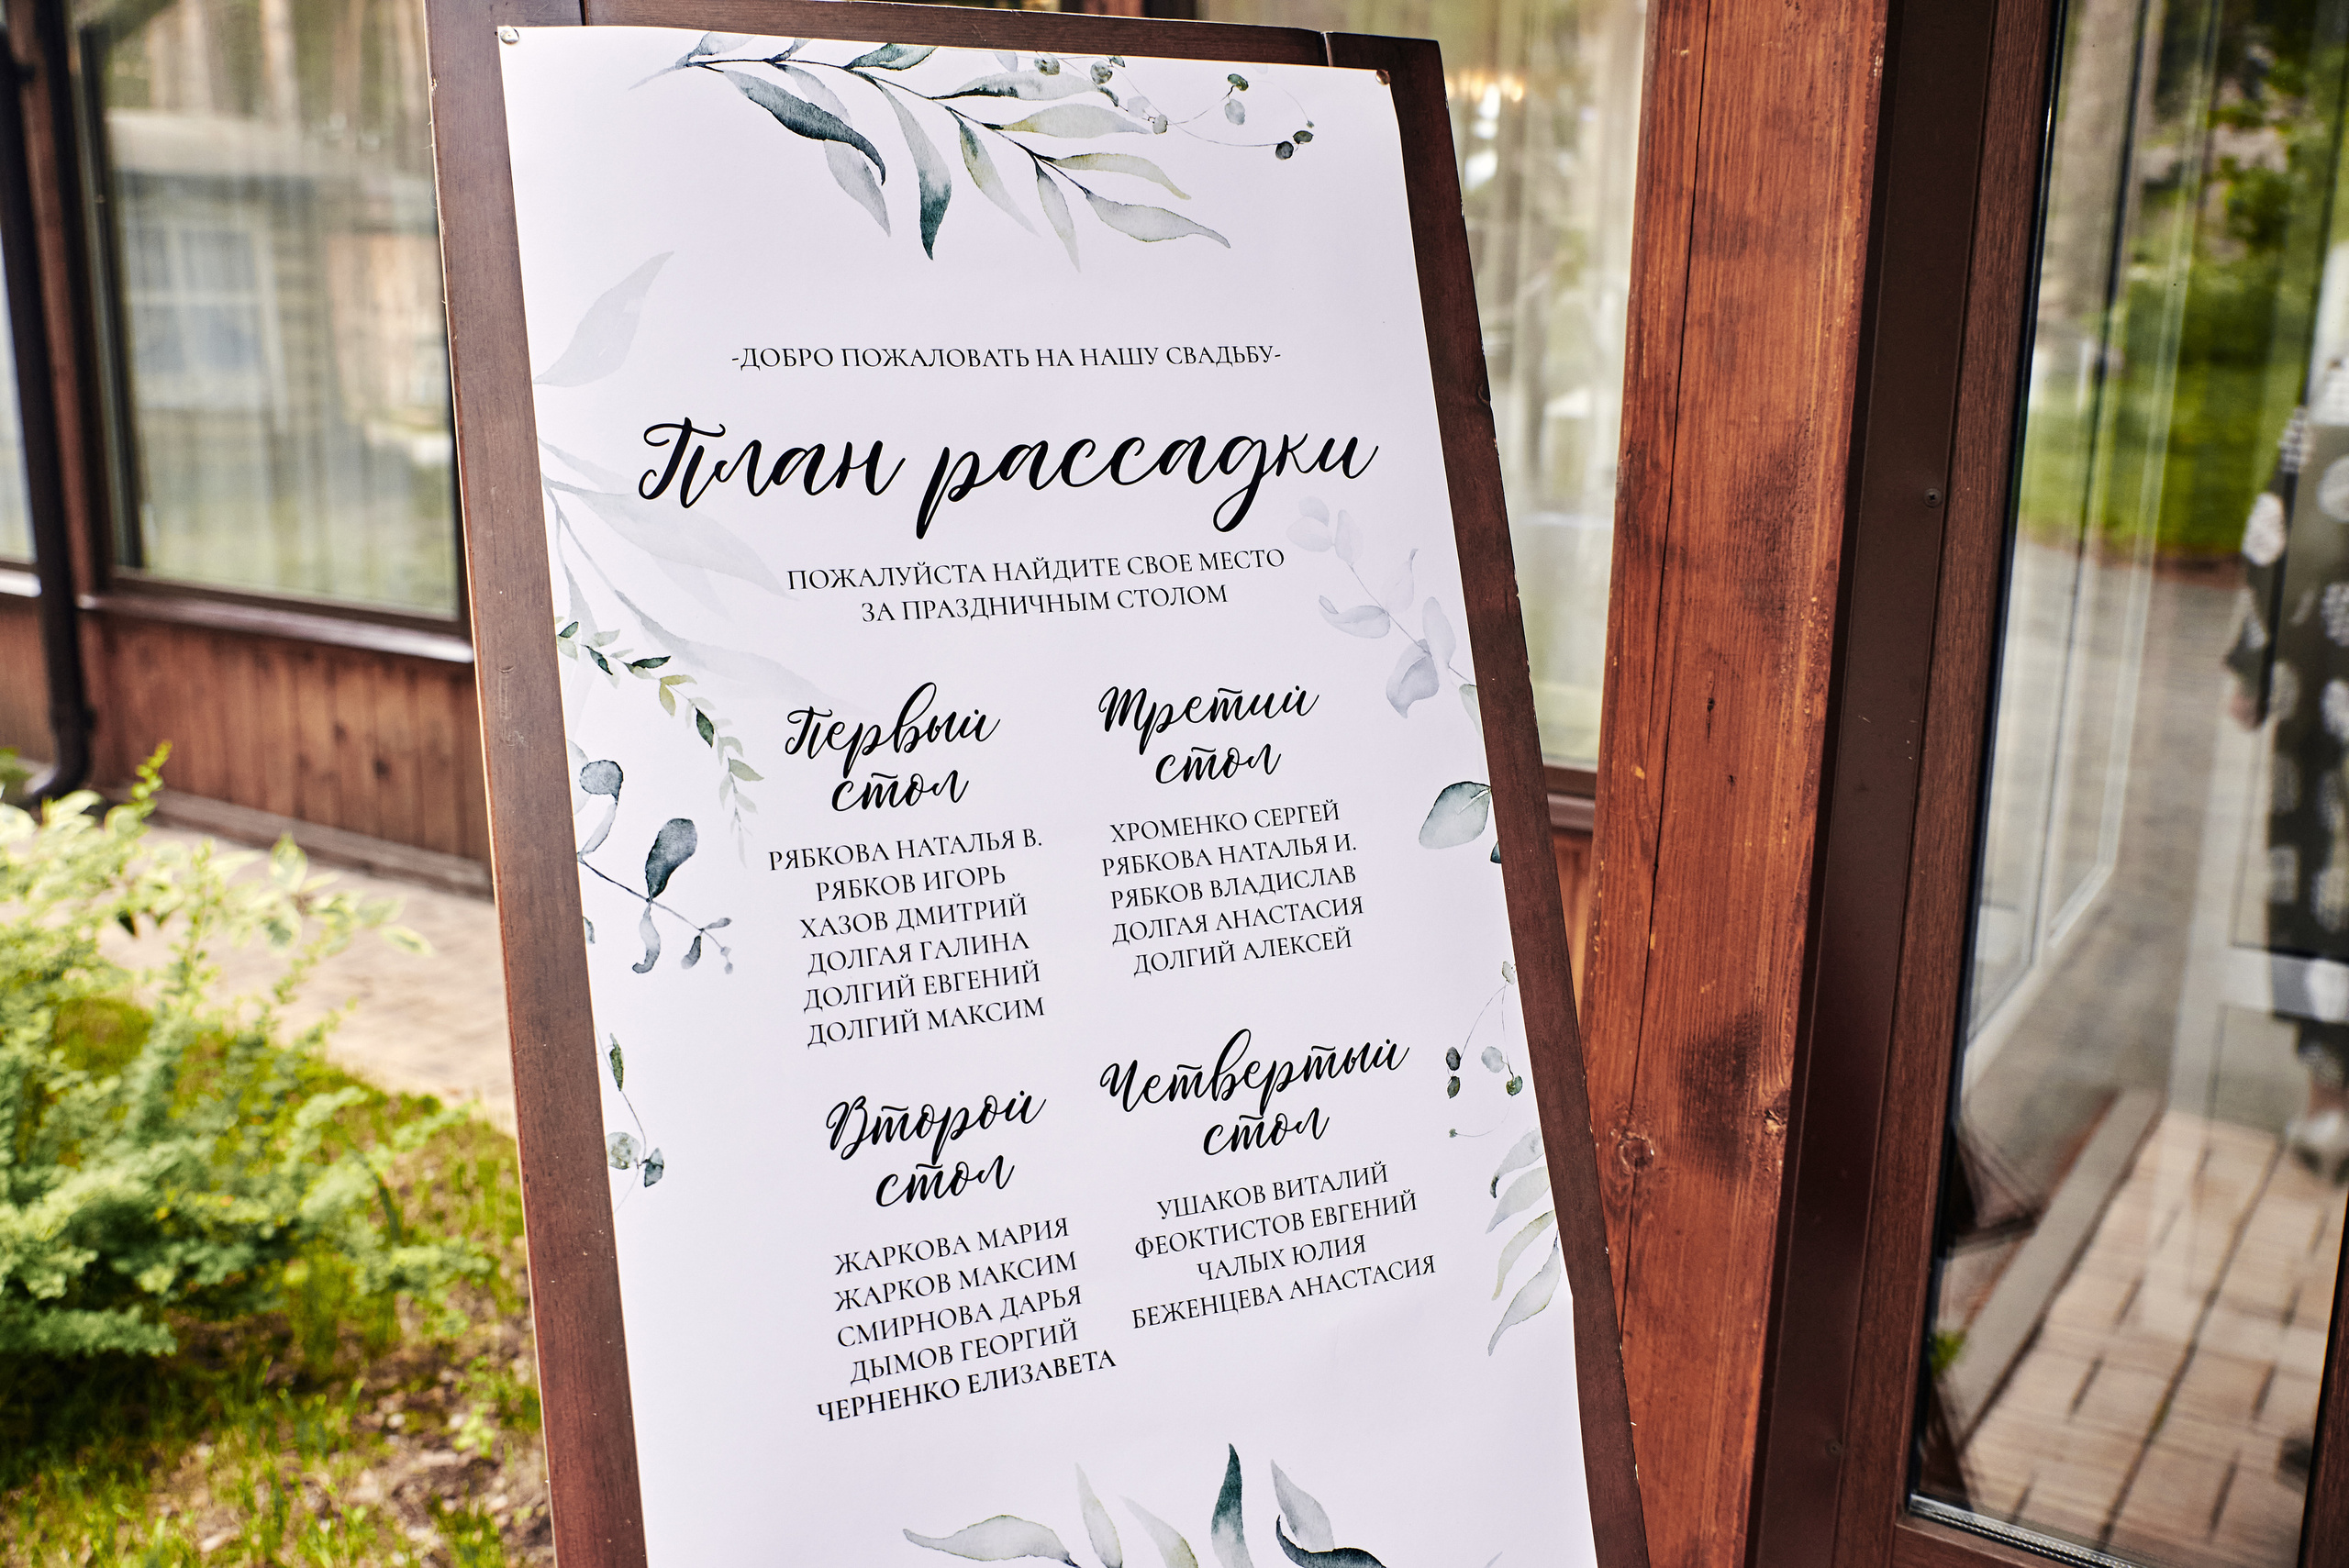 -ДОБРО ПОЖАЛОВАТЬ НА НАШУ СВАДЬБУ-
План рассадки
ПОЖАЛУЙСТА НАЙДИТЕ СВОЕ МЕСТО
ЗА ПРАЗДНИЧНЫМ СТОЛОМ
Первый
стол
РЯБКОВА НАТАЛЬЯ В.
РЯБКОВ ИГОРЬ
ХАЗОВ ДМИТРИЙ
ДОЛГАЯ ГАЛИНА
ДОЛГИЙ ЕВГЕНИЙ
ДОЛГИЙ МАКСИМ
Второй
стол
ЖАРКОВА МАРИЯ
ЖАРКОВ МАКСИМ
СМИРНОВА ДАРЬЯ
ДЫМОВ ГЕОРГИЙ
ЧЕРНЕНКО ЕЛИЗАВЕТА
Третий
стол
ХРОМЕНКО СЕРГЕЙ
РЯБКОВА НАТАЛЬЯ И.
РЯБКОВ ВЛАДИСЛАВ
ДОЛГАЯ АНАСТАСИЯ
ДОЛГИЙ АЛЕКСЕЙ
Четвертый
стол
УШАКОВ ВИТАЛИЙ
ФЕОКТИСТОВ ЕВГЕНИЙ
ЧАЛЫХ ЮЛИЯ
БЕЖЕНЦЕВА АНАСТАСИЯ